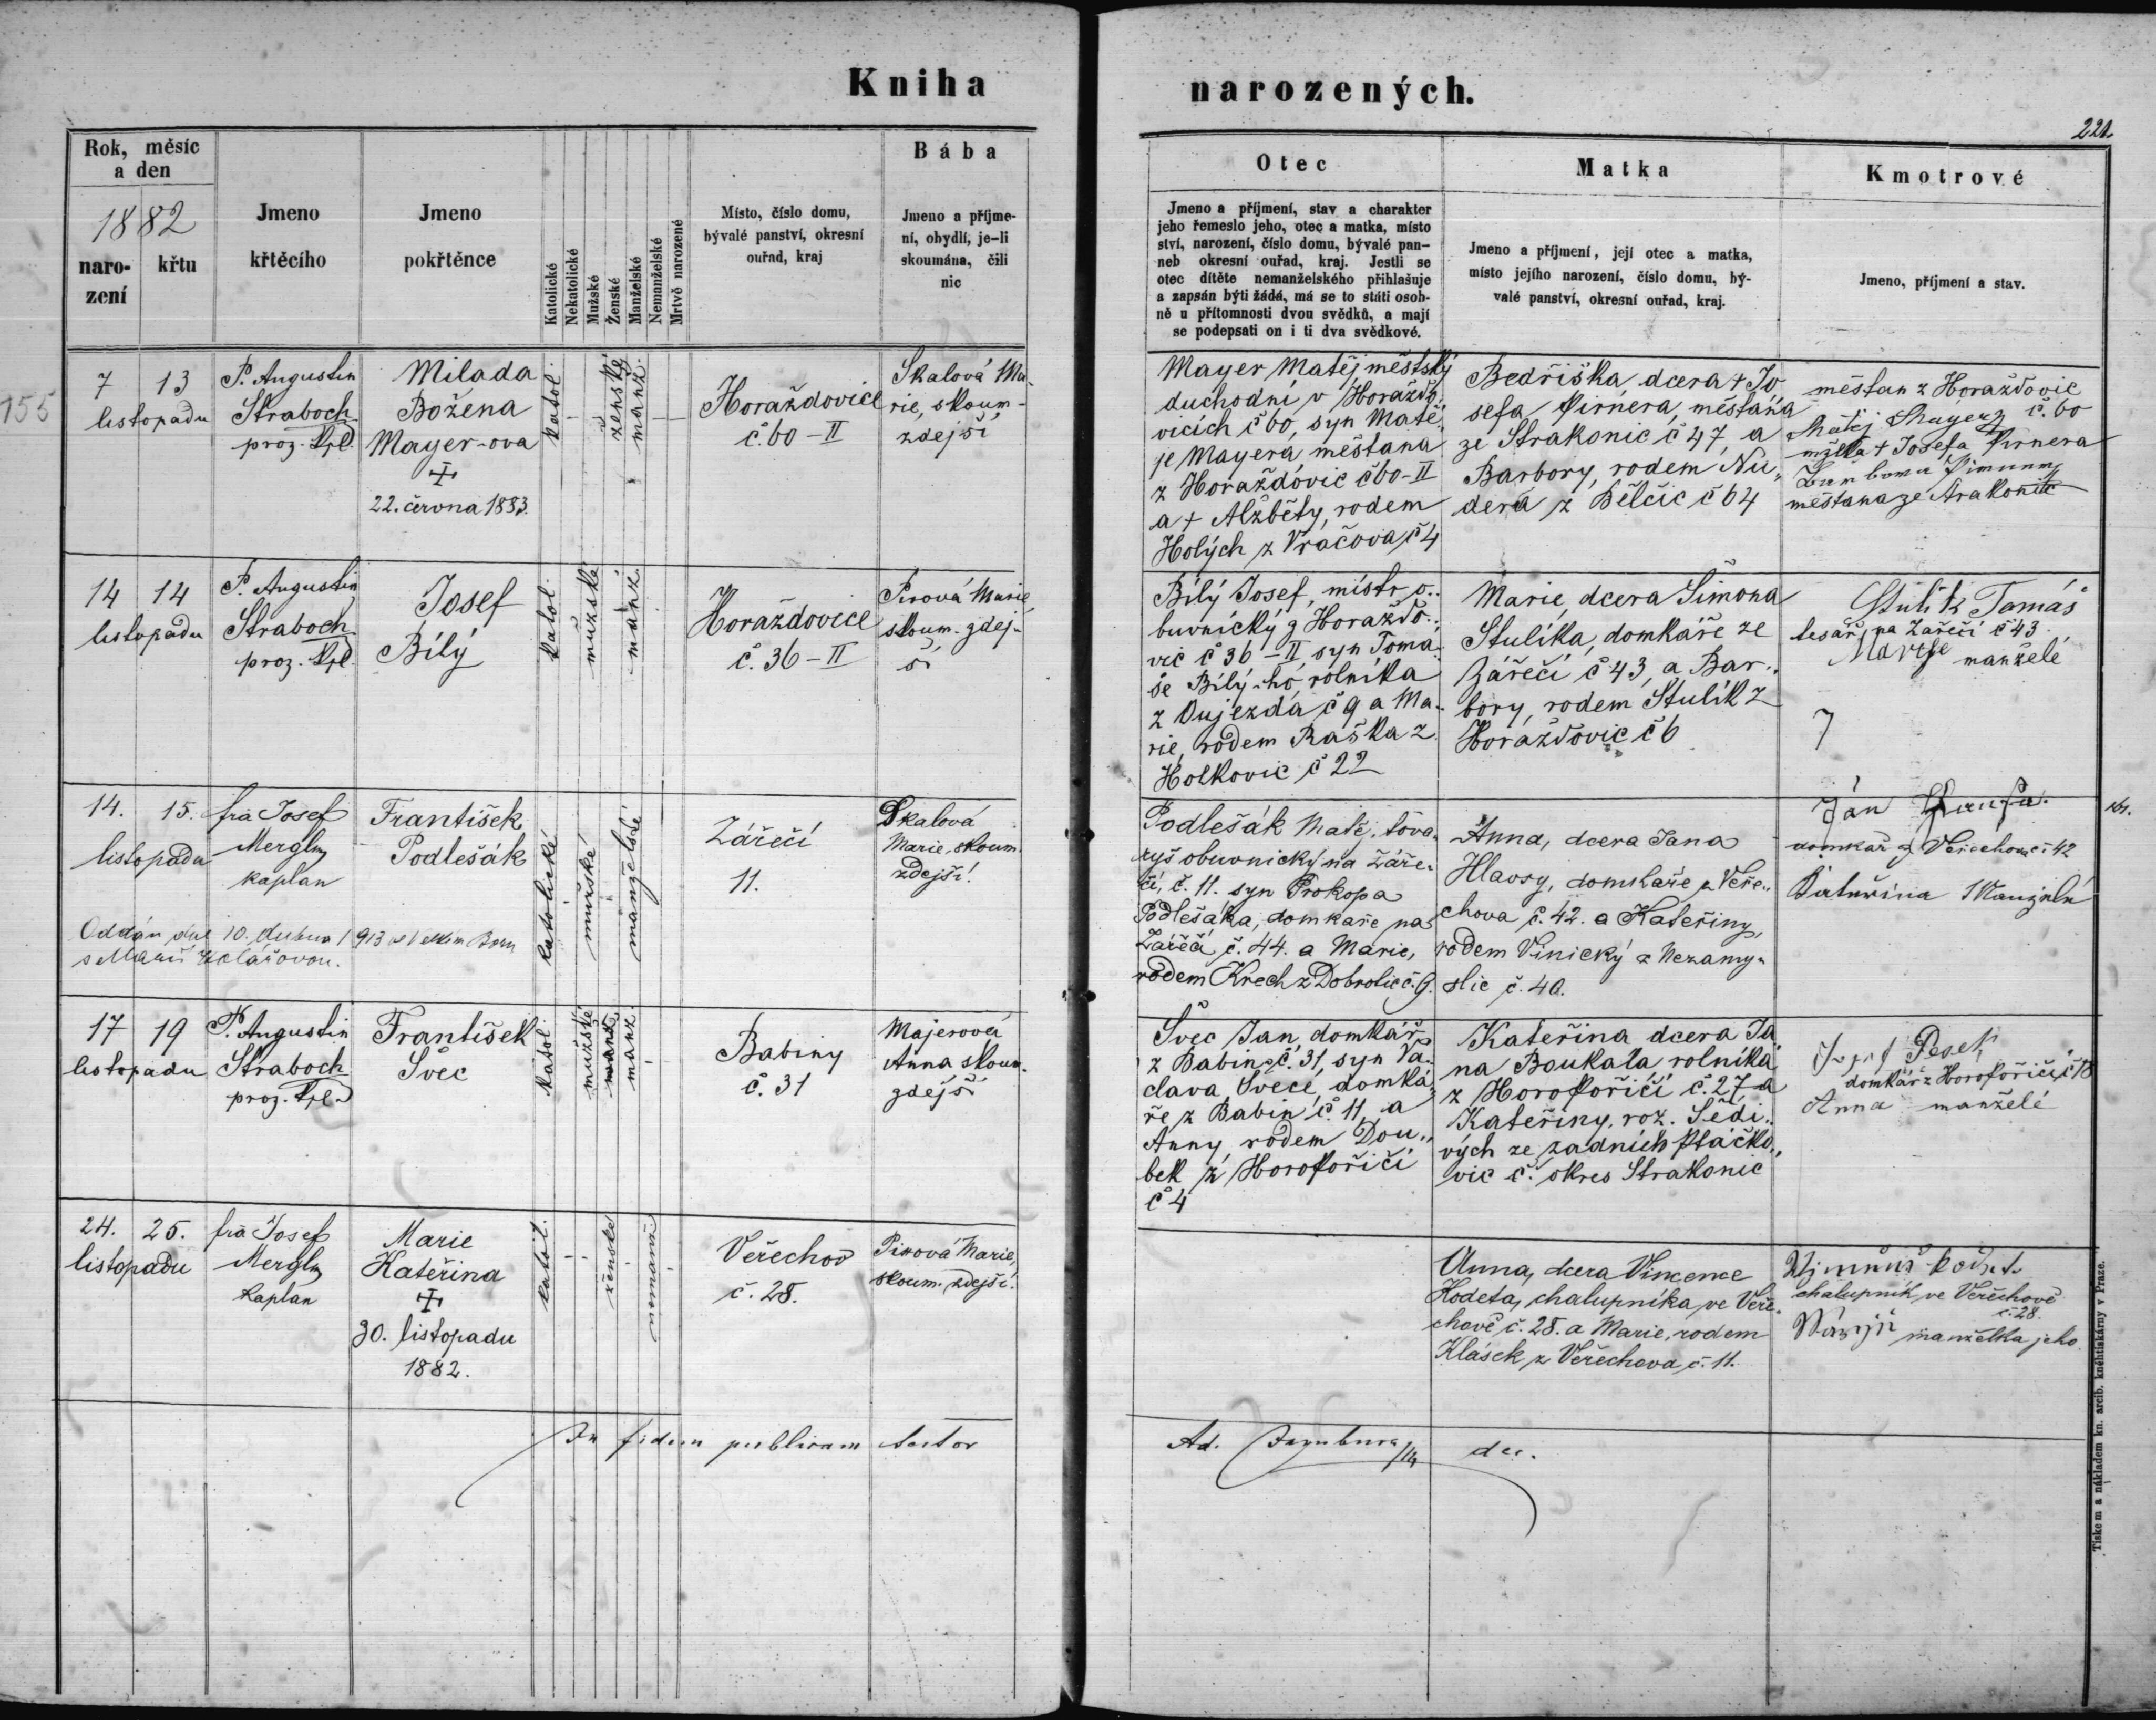 Kniha
narozených.
221.
Rok, měsíc
a den
1882
naro-
zení
křtu
Jmeno
křtěcího
Jmeno
pokřtěnce
Katolické
Nekatolické
Mužské
Ženské
Manželské
Nemanželské
Mrtvě narozené
Místo, číslo domu,
bývalé panství, okresní
ouřad, kraj
Bába
Jmeno a příjme-
ní, obydlí, je-li
skoumána, čili
nic
Otec
Jmeno a příjmení, stav a charakter
jeho řemeslo jeho, otec a matka, místo
ství, narození, číslo domu, bývalé pan-
neb okresní ouřad, kraj. Jestli se
otec dítěte nemanželského přihlašuje
a zapsán býti žádá, má se to státi osob-
ně u přítomnosti dvou svědků, a mají
se podepsati on i ti dva svědkové.
Matka
Jmeno a příjmení, její otec a matka,
místo jejího narození, číslo domu, bý-
valé panství, okresní ouřad, kraj.
Kmotrové
Jmeno, příjmení a stav.
155
7 13
listopadu
P. Augustin
Straboch
proz. Kpl.
Milada
Božena
Mayer-ova
22. června 1883.
katol.
ženské
manž.
Horažďovice
č. 60-II
Skalová Ma-
rie, skoum-
zdejší
Mayer Matěj městský
duchodní v Horažďo-
vicích č 60, syn Matě-
je Mayera měšťana
z Horažďovic č 60-II
a + Alžběty, rodem
Holých z Vračova č 4
Bedřiška dcera + Jo
sefa Pirnera, měšťana
ze Strakonic č 47, a
Barbory, rodem Nu-
dera z Bělčic č 64
měšťan z Horažďovic
č. 60
Matěj Mayer
mželka + Josefa Pirnera
měšťana ze Strakonic
14 14
listopadu
P. Augustin
Straboch
proz. Kpl.
Josef
Bílý
katol.
mužské
manž.
Horažďovice
č. 36-II
Pixová Marie,
skoum. zdej-
ší
Bílý Josef, mistr o-
buvnický z Horažďo-
vic č 36-II syn Tomá-
še Bílý-ho, rolníka
z Oujezda č 9 a Ma-
rie, rodem Raška z
Holkovic č 22
Marie, dcera Šimona
Stulíka, domkáře ze
Zářečí č 43, a Bar-
bory, rodem Stulík z
Horažďovic č 6
Stulík Tomáš
tesař na Zářečí č 43
Marye manželé
14. 15.
listopadu
fra Josef
Mergl
kaplan
František
Podlešák
katolické
mužské
manželské
Zářečí
11.
Skalová
Marie, skoum.
zdejší.
Podlešák Matěj, tova-
ryš obuvnický na Záře-
čí, č. 11. syn Prokopa
Podlešáka, domkaře na
Zářečí č. 44. a Marie,
rodem Krech z Dobrotic č. 9.
Anna, dcera Jana
Hlavsy, domkaře z Veře-
chova č. 42. a Kateřiny,
rodem Vinický z Nezamy-
slic č. 40.
Ján
domkář z Věřechova č. 42
Oddán dne 10. dubna 1913
17 19
listopadu
P. Augustin
Straboch
proz. Kpl.
František
Švec
katol.
mužské
manž.
manž.
Babiny
č. 31
Majerová
Anna skoum.
zdejší
Švec Jan, domkář
z Babin č. 31, syn Vá-
clava Švece, domká-
ře z Babin č. 11, a
Anny rodem Dou-
bek z Horopořičí
č 4
Kateřina dcera Ja
na Boukala, rolníka
z Horopořičí č. 27, a
Kateřiny, roz. Šedi-
vých ze zadních Ptáčko-
vic č. okres Strakonic
Josef Pešek
domkář z Horopořičí č 18
Anna manželé
24. 25.
listopadu
fra Josef
Mergl
kaplan
Marie
Kateřina
30. listopadu
1882.
katol.
ženské
nemanž.
Veřechov
č. 28.
Pixová Marie,
skoum. zdejší.
Anna, dcera Vincence
Kodeta, chalupníka ve Veře-
chově č. 28. a Marie, rodem
Klásek z Veřechova č. 11.
chalupník ve Veřechově
č. 28.
manželka jeho.
In fidem publicam testor
Ad. děk.
Tiskem a nákladem kn. arcib. kněhtiskárny v Praze.